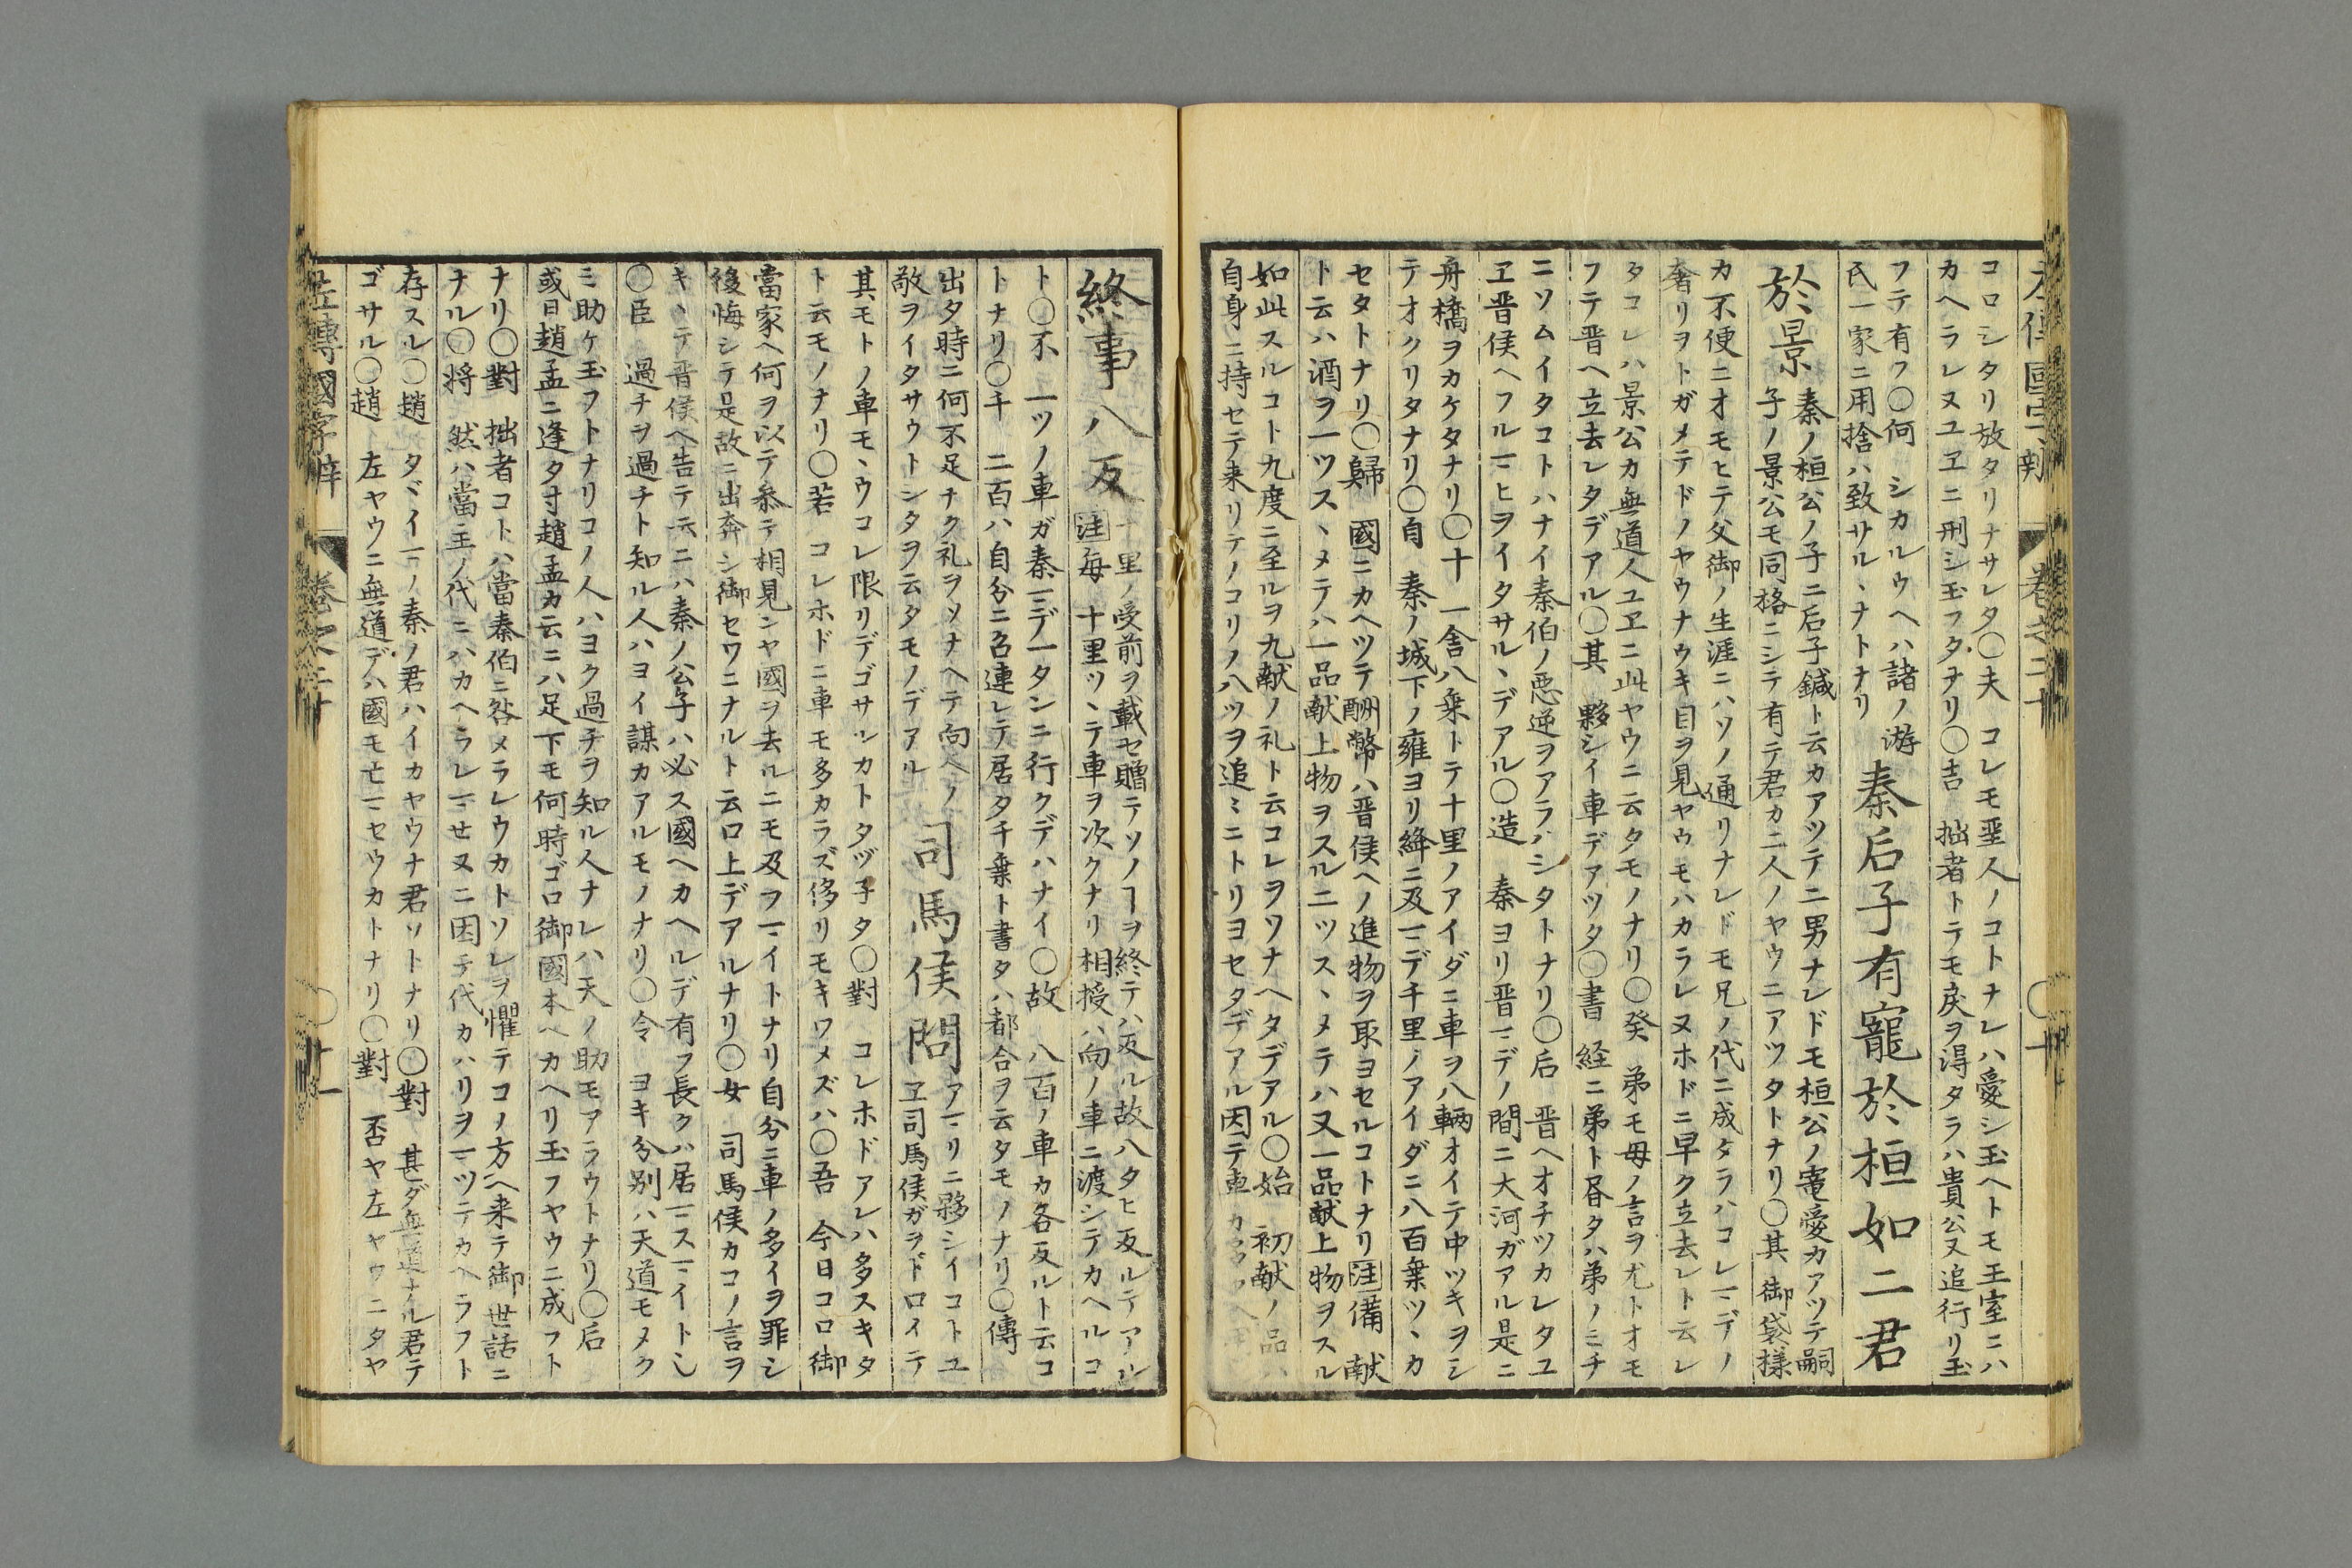 左傳國字辯 卷之二十 〇十
コロシタリ放タリナサレタ〇夫 コレモ聖人ノコトナレハ愛シ玉ヘトモ王室ニハ
カヘラレヌユヱニ刑シ玉フタナリ〇吉 拙者トテモ戾ヲ得タラハ貴公又追行リ玉
フテ有フ〇何 シカルウヘハ諸ノ游
氏一家ニ用捨ハ致サル、ナトナリ
秦后子有寵於桓如二君
於景
秦ノ桓公ノ子ニ后子鍼ト云カアツテ二男ナレドモ桓公ノ寵愛カアツテ嗣
子ノ景公モ同格ニシテ有テ君カ二人ノヤウニアツタトナリ〇其 御袋様
カ不便ニオモヒテ父御ノ生涯ニハソノ通リナレドモ兄ノ代ニ成タラハコレマデノ
奢リヲトガメテドノヤウナウキ目ヲ見ヤウモハカラレヌホドニ早ク立去レト云レ
タコレハ景公カ無道人ユヱニ此ヤウニ云タモノナリ〇癸 弟モ母ノ言ヲ尤トオモ
フテ晋ヘ立去レタデアル〇其 夥シイ車デアツタ〇書 経ニ弟ト書タハ弟ノミチ
ニソムイタコトハナイ秦伯ノ悪逆ヲアラハシタトナリ〇后 晋ヘオチツカレタユ
ヱ晋侯ヘフルマヒヲイタサル、デアル〇造 秦ヨリ晋マデノ間ニ大河ガアル是ニ
舟橋ヲカケタナリ〇十 一舎八乗トテ十里ノアイダニ車ヲ八輛オイテ中ツキヲシ
テオクリタナリ〇自 秦ノ城下ノ雍ヨリ絳ニ及マデ千里ノアイダニ八百乗ツ、カ
セタトナリ〇歸 國ニカヘツテ酬幣ハ晋侯ヘノ進物ヲ取ヨセルコトナリ注備 献
ト云ハ酒ヲ一ツス、メテハ一品献上物ヲスル二ツス、メテハ又一品献上物ヲスル
如此スルコト九度ニ至ルヲ九献ノ礼ト云コレヲソナヘタデアル〇始 初献ノ品ハ
自身ニ持セテ来リテノコリノ八ツヲ追ミニトリヨセタデアル因テ車
終事八反
十里ノ受前ヲ載セ贈テソノヿヲ終テハ反ル故八タヒ反ルテアル
注每 十里ツ、テ車ヲ次クナリ相授ハ向ノ車ニ渡シテカヘルコ
ト〇不 一ツノ車ガ秦マデ一タンニ行クデハナイ〇故 八百ノ車カ各反ルト云コ
トナリ〇千 二百ハ自分ニ召連レテ居タ千乗ト書タハ都合ヲ云タモノナリ〇傳
出タ時ニ何不足ナク礼ヲソナヘテ向ヘノ
敬ヲイタサウトシタヲ云タモノデアル
司馬侯問
アマリニ夥シイコトユ
ヱ司馬侯ガヲドロイテ
其モトノ車モ、ウコレ限リデゴサルカトタヅ子タ〇對 コレホドアレハ多スキタ
ト云モノナリ〇若 コレホドニ車モ多カラズ侈リモキワメズハ〇吾 今日コロ御
當家ヘ何ヲ以テ参テ相見ンヤ國ヲ去ルニモ及フマイトナリ自分ニ車ノ多イヲ罪シ
後悔シテ是故ニ出奔シ御セワニナルト云口上デアルナリ〇女 司馬侯カコノ言ヲ
キ、テ晋侯ヘ告テ云ニハ秦ノ公子ハ必ス國ヘカヘルデ有フ長クハ居マスマイト乄
〇臣 過チヲ過チト知ル人ハヨイ謀カアルモノナリ〇令 ヨキ分別ハ天道モヌク
ミ助ケ玉フトナリコノ人ハヨク過チヲ知ル人ナレハ天ノ助モアラウトナリ〇后
或日趙孟ニ逢タ寸趙孟カ云ニハ足下モ何時ゴロ御國本ヘカヘリ玉フヤウニ成フト
ナリ〇對 拙者コトハ當秦伯ニ咎メラレウカトソレヲ懼テコノ方ヘ来テ御世話ニ
ナル〇将 然ハ當主ノ代ニハカヘラレマセヌニ因テ代カハリヲマツテカヘラフト
存スル〇趙 タヾイマノ秦ノ君ハイカヤウナ君ソトナリ〇對 甚ダ無道ナル君テ
ゴサル〇趙 左ヤウニ無道デハ國モ亡マセウカトナリ〇對 否ヤ左ヤウニタヤ
左傳國字辯 卷之二十 〇十一